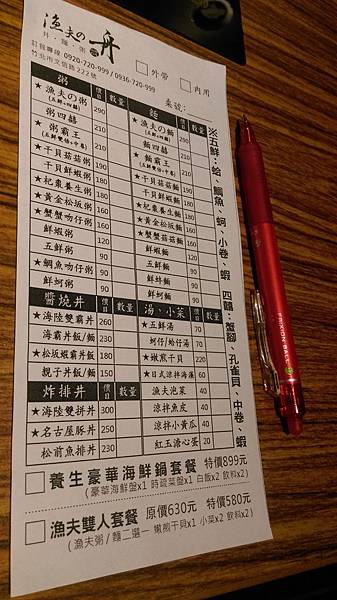 漁夫の舟
丼・麵・粥
訂餐專線 0920-720-999 / 0936-720-999
竹北市文信路222號
外帶
內用
桌號：
粥 價目 數量
★漁夫の粥 290
(五鮮+四囍)
粥四囍 210
粥霸王
(五鮮雙倍+中卷)
★干貝菇菇粥 180
干貝鮮蝦粥 180
★杞棗養生粥
★黃金松坂粥 160
★蟹蟹吻仔粥 160
鮮蝦粥
五鮮粥
★鯛魚吻仔粥
鮮蚵粥
麵 價目 數量
★漁夫の麵 290
(五鮮+四囍)
麵四囍 210
麵霸王
(五鮮雙倍+中卷)
★干貝菇菇麵 180
干貝鮮蝦麵 180
★杞棗養生麵
★黃金松坂麵 160
★蟹蟹菇菇麵 160
鮮蝦麵
五鮮麵
鮮蚵麵
鮮魷麵
※五鮮：蛤、鯛魚、蚵、小卷、蝦　四囍：蟹腳、孔雀貝、中卷、蝦
醬燒丼 價目 數量
★海陸雙霸丼 260
海霸丼飯/麵 230
★松坂蝦霸丼飯 180
親子丼飯/麵 150
炸排丼 價目 數量
★海陸雙拼丼 300
★名古屋豚丼 250
松前魚排丼 230
湯、小菜 價目 數量
★五鮮湯 70
蚵仔/蛤仔湯 70
★嫩煎干貝 220
★日式涼拌海藻 60
漁夫泡菜 40
涼拌魚皮 40
涼拌小黃瓜 40
紅玉溏心蛋 20
養生豪華海鮮鍋套餐 特價899元
(豪華海鮮盤x1 時疏菜盤x1 白飯x2 飲料x2)
漁夫雙人套餐 原價630元 特價580元
(漁夫粥/麵二選一 嫩煎干貝x1 小菜x2 飲料x2)
FRIXION BALL